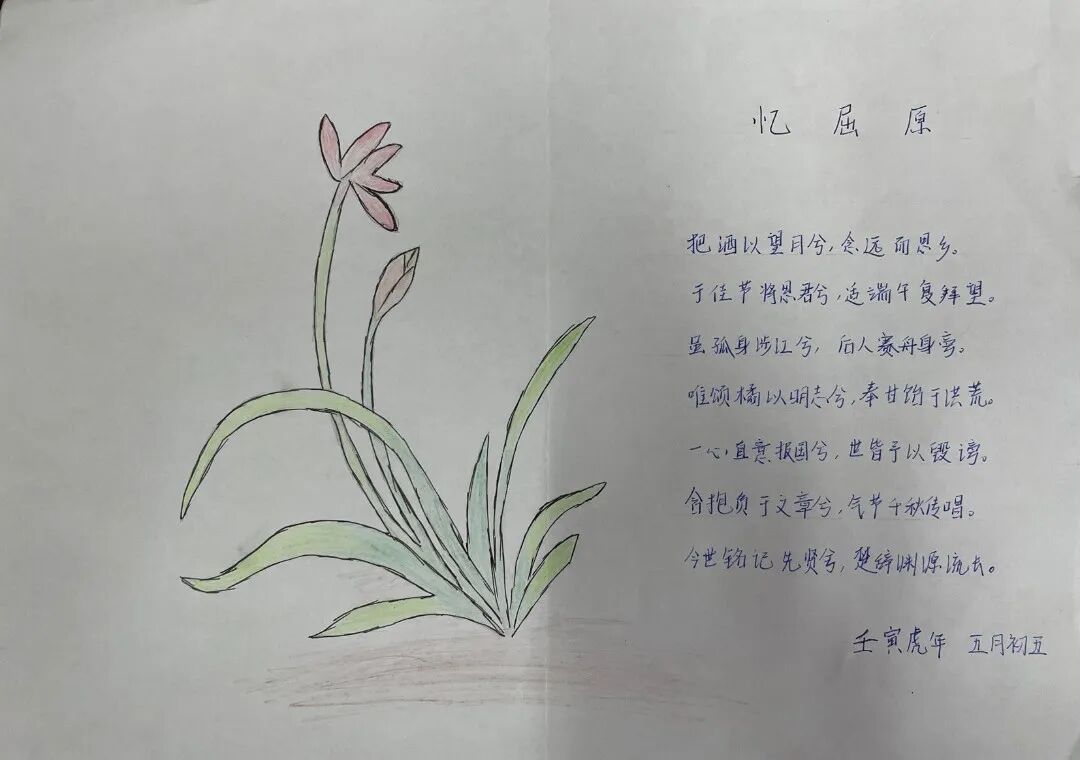 忆屈原
把酒以望月兮，念远而思乡。
于佳节将思君兮，适端午复拜望。
虽孤身涉江兮，后人赛舟身旁。
唯颂橘以明志兮，奉甘饴于洪荒。
一心直意报国兮，世皆予以毁谤。
含抱负于文章兮，气节千秋传唱。
今世铭记先贤兮，楚辞渊源流长。
壬寅虎年 五月初五